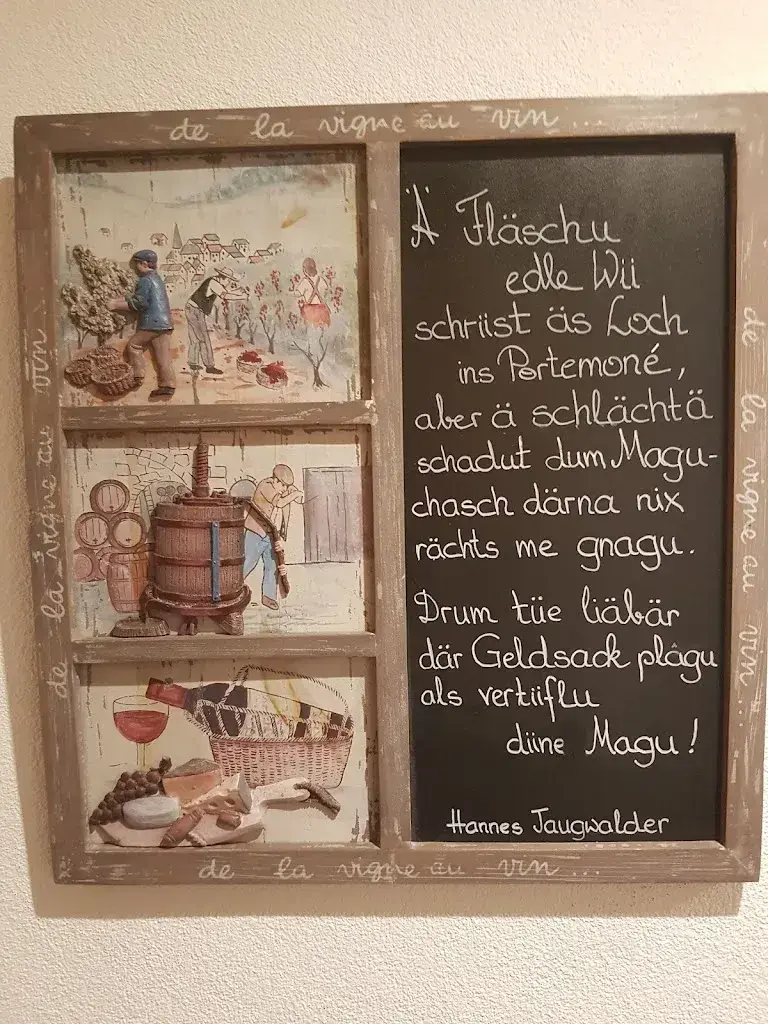 de la vigne au vin...
de la vigne au vin
Ä Fläschu
edle Wii
schriist äs Loch
ins Portemoné,
aber ä schlächtä
schadut dum Magu-
chasch därna nix
rächts me gnagu.
Drum tüe liäbär
där Geldsack plâgu
als vertiiflu
diine Magu!
Hannes Taugwalder
de la vigne au vin...
de la vigne au vin...